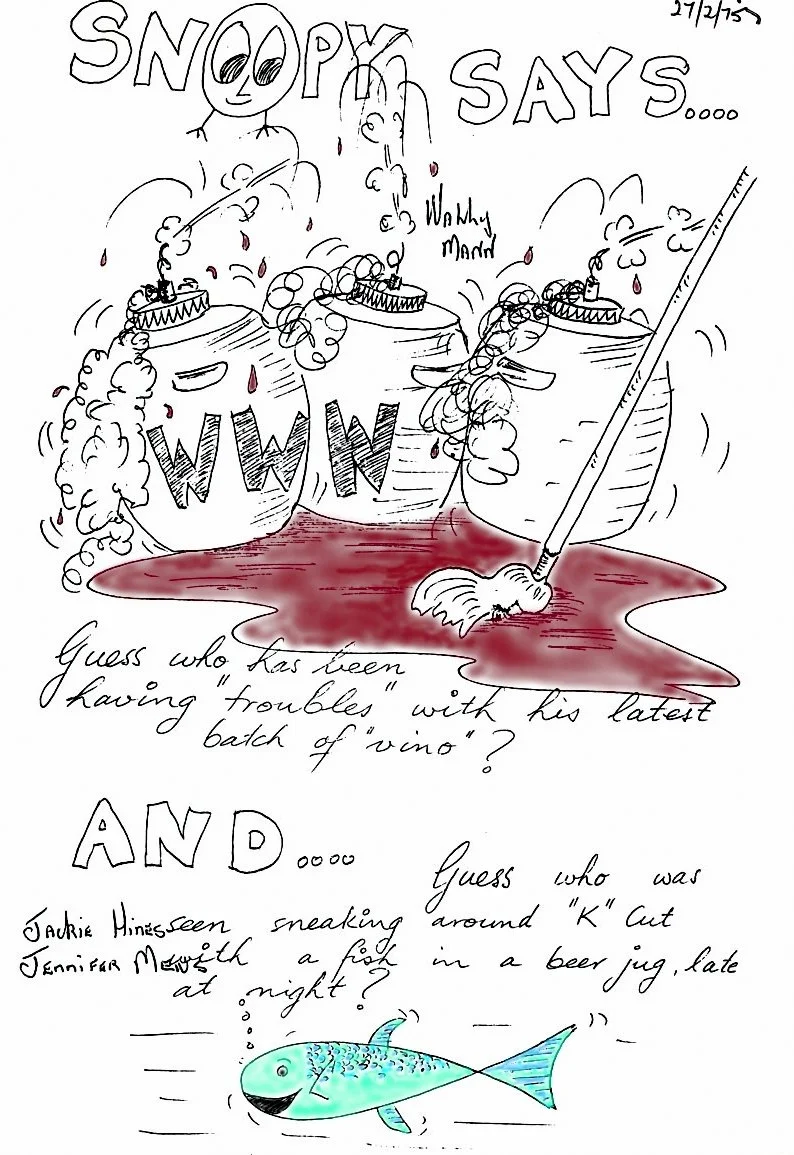 27/2/75
SNOOPY SAYS....
Wally
Mann
WWW
Guess who has been
having "troubles" with his latest
batch of "vino"?
AND....
Guess who was
Jackie Hines seen sneaking around "K" Cut
Jennifer Mews with a fish in a beer jug, late
at night?